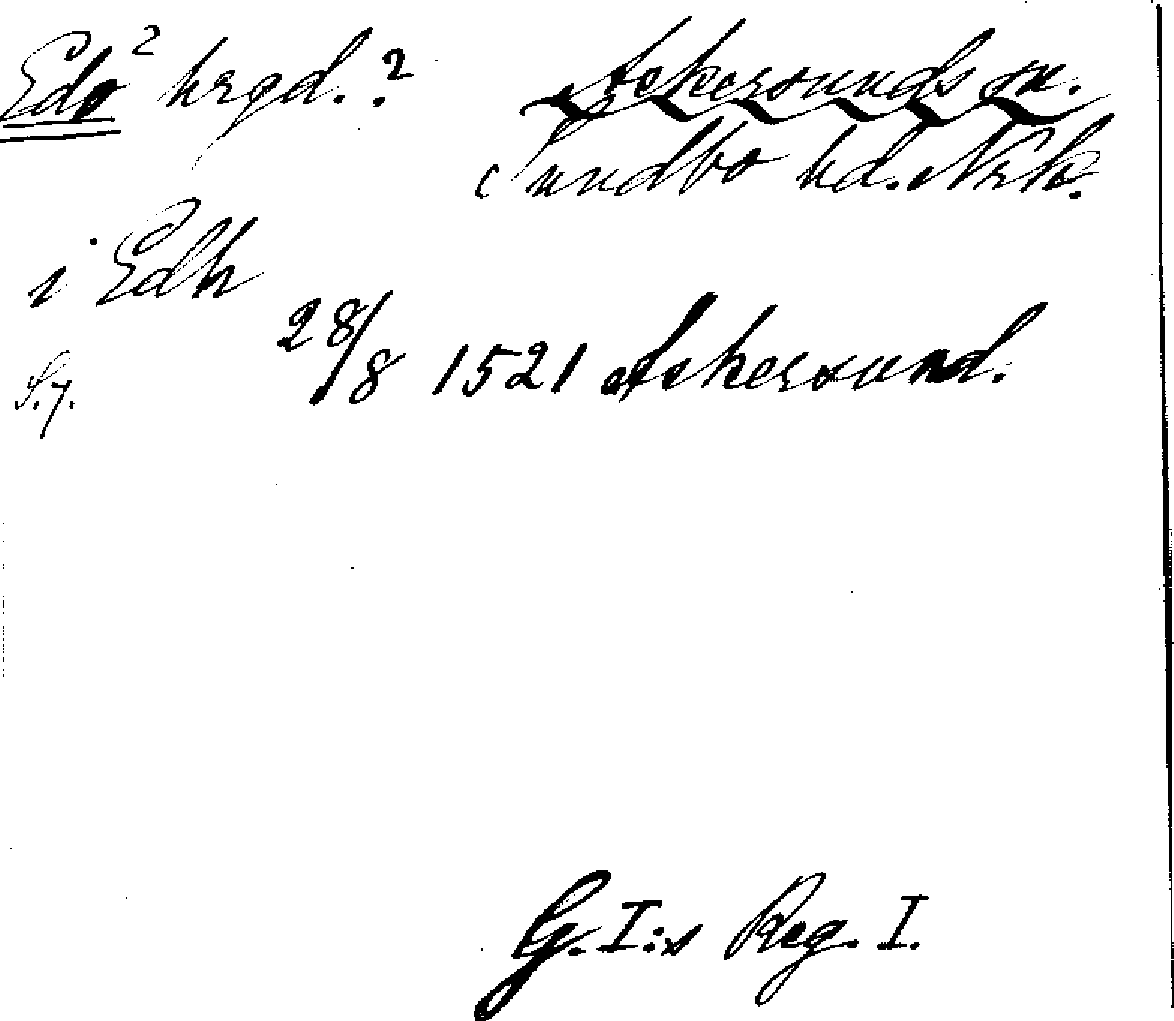 Edö² hrgd.? Askersunds sn.
Sundbo hd. Nrk.
i Edh
28/8 1521 Askersund.
S. 7.
G. I:s Reg. I.